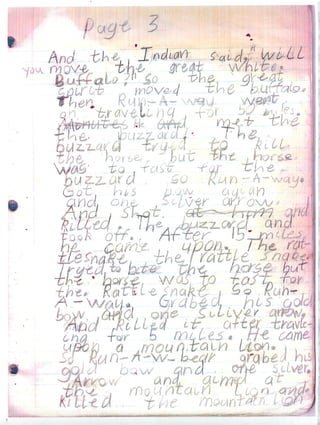 Page 3
And the Indian said," will
you move the great white.
Buffalo," so the great
spirit moved the buffalo.
Then Run-A-way went
on traveling for 50
minites and met the
the buzzard. The
buzzard tryed to kill
the horse but the horse
was to fast for the
buzzard. so Run-A-way.
Got his bow agian
and one silver arrow.
And shot at him and
killed. The buzzard. and
took off. After 5 miles
he came upon. The rat-
tlesnake the rattle snake
tryed to bite the horse but
the horse was to fast for
the Rattle snake so Run-
A-way. Grabed his gold
bow and one silliver arrow.
And killed it after travle-
ing for 5 miles. He came
upon a mountain lion.
so Run-A-W-bear grabed his
gold baw and one silver.
Arrow and aimp at
the mountain lion and.
killed the mountain lion